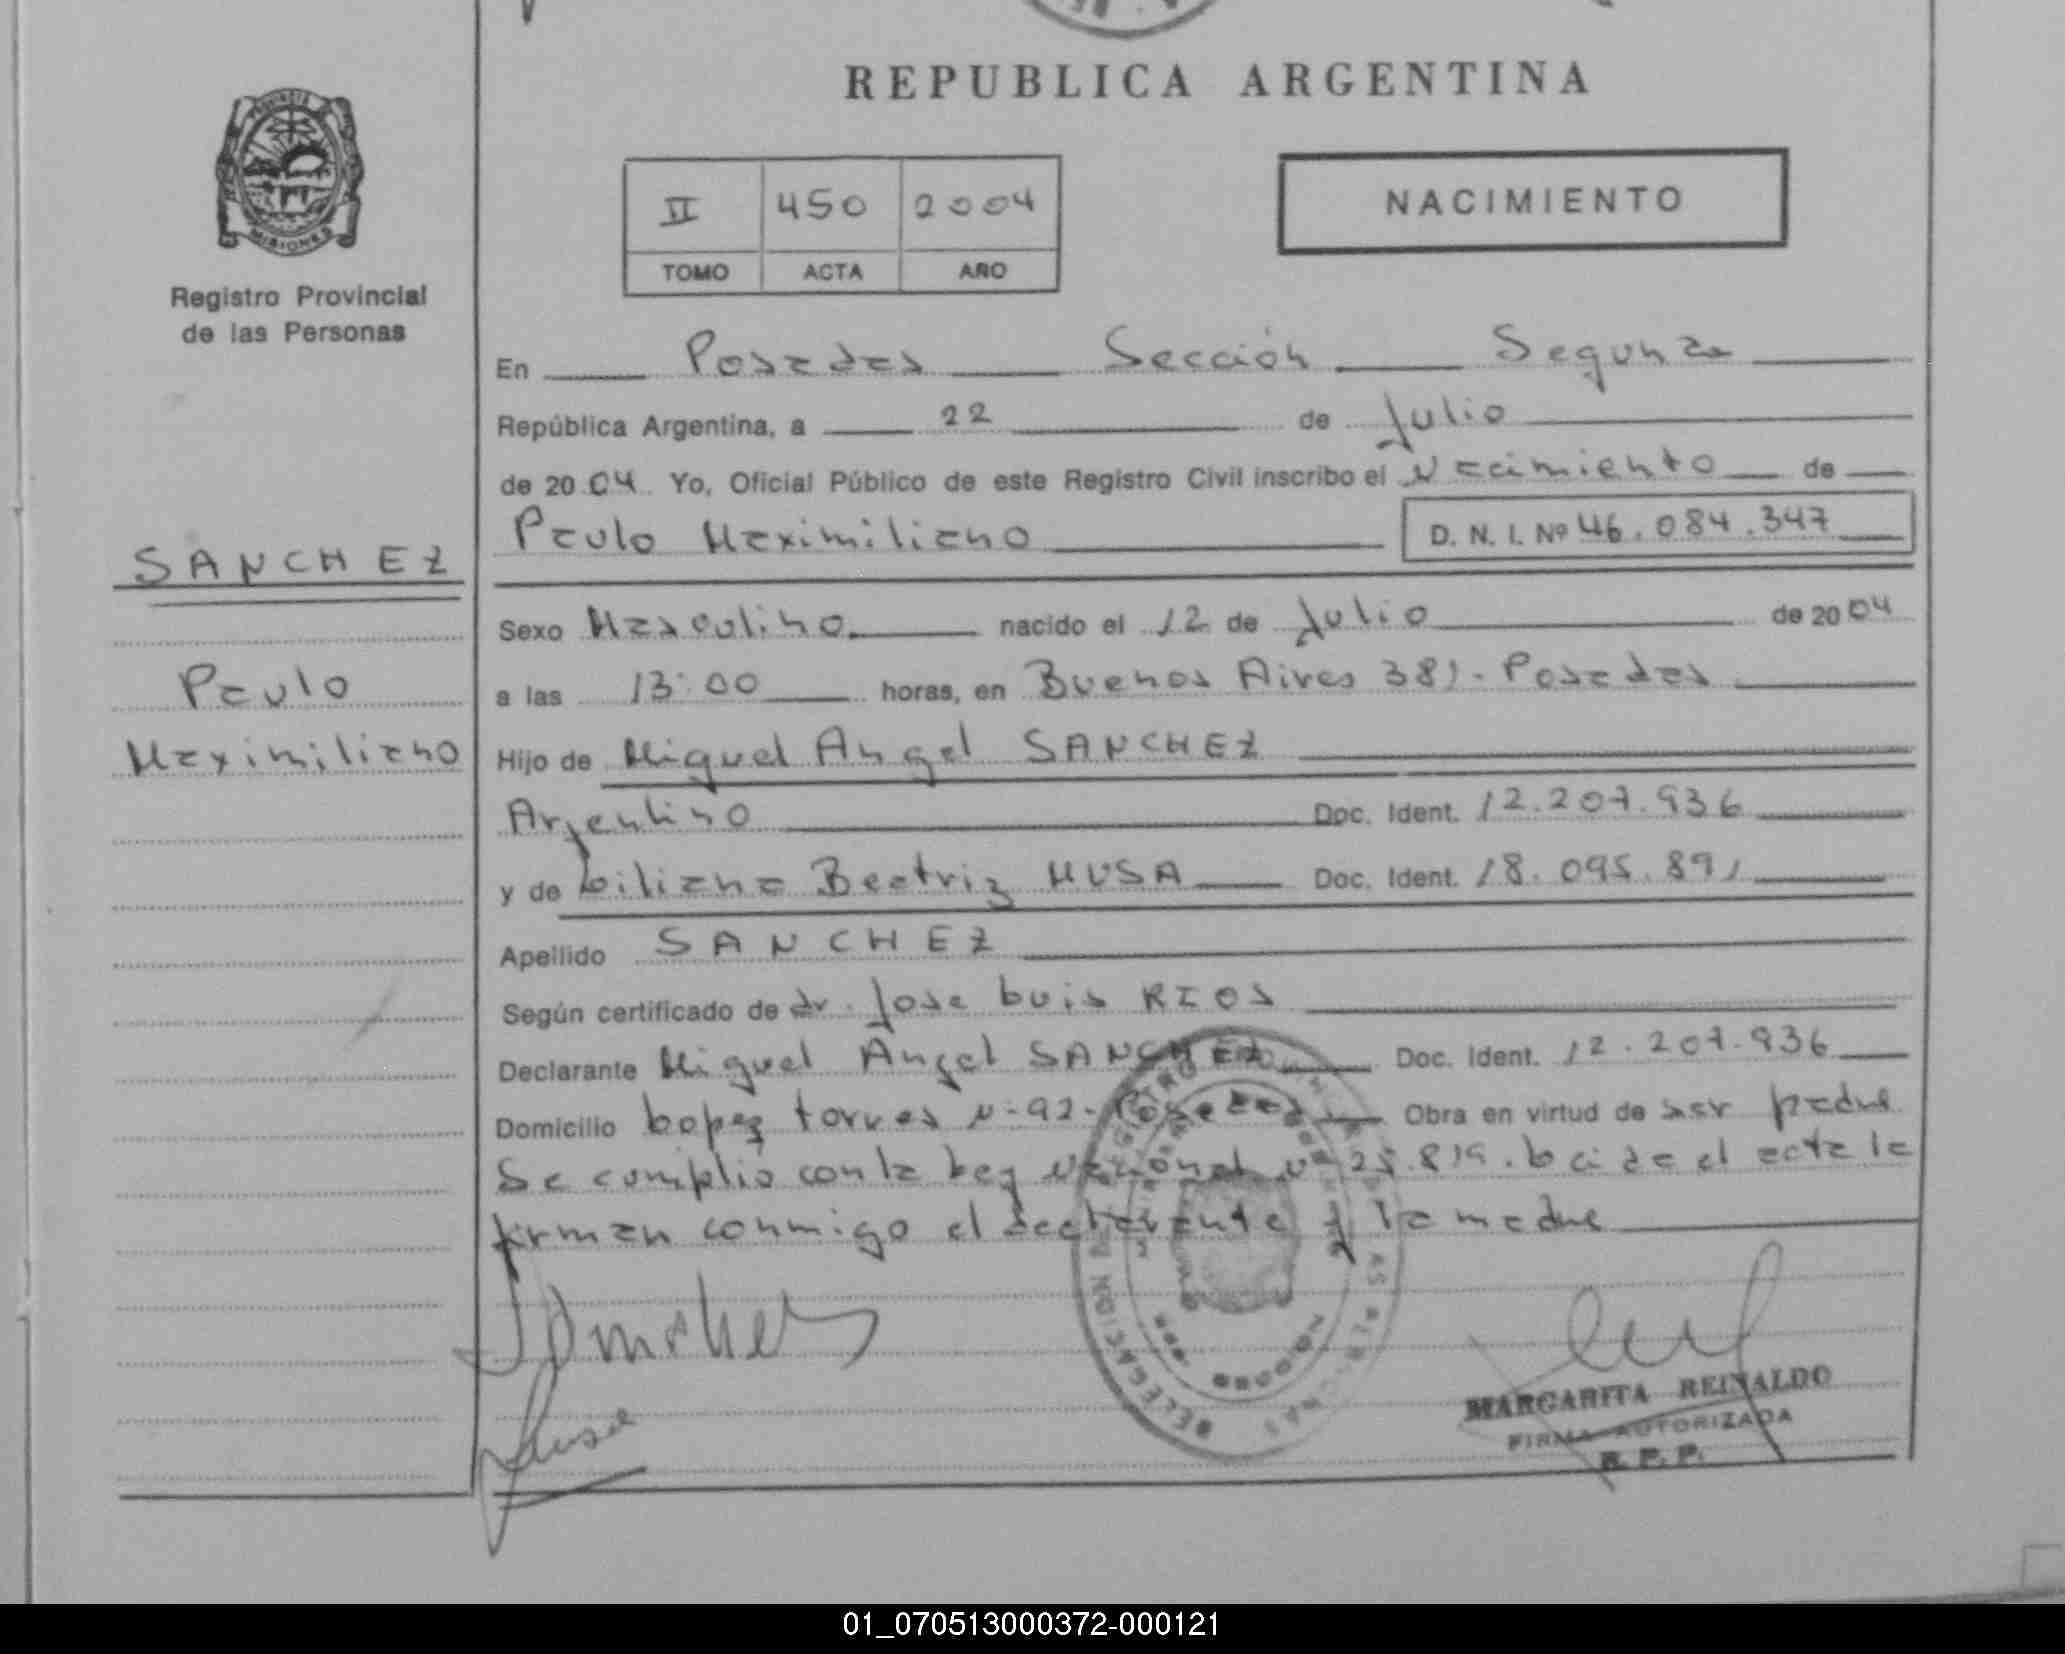 REPUBLICA ARGENTINA
PROVINCIA
MISIONES
Registro Provincial
de las Personas
II 450 2004
TOMO ACTA AÑO
NACIMIENTO
En Posadas Sección Segunda
República Argentina, a 22 de Julio
de 2004 Yo, Oficial Público de este Registro Civil inscribo el Nacimiento de
Paulo Maximiliano D. N. I. Nº 46.084.347
SANCHEZ
Paulo
Maximiliano
Sexo Masculino nacido el 12 de Julio de 2004
a las 13:00 horas, en Buenos Aires 381. Posadas
Hijo de Miguel Angel SANCHEZ
Argentino Doc. Ident. 12.207.936
y de Liliana Beatriz MUSA Doc. Ident. 18.095.891
Apellido SANCHEZ
Según certificado de dr. Jose Luis RIOS
Declarante Miguel Angel SANCHEZ Doc. Ident. 12.207.936
Domicilio Lopez torres N-92-Posadas Obra en virtud de ser padre
Se cumplio con la Ley Nacional Nº 25.819. Leida el acta la
firman conmigo el declarante y la madre
Sanchez
Musa
MARGARITA REINALDO
FIRMA AUTORIZADA
R. P. P.
01_070513000372-000121